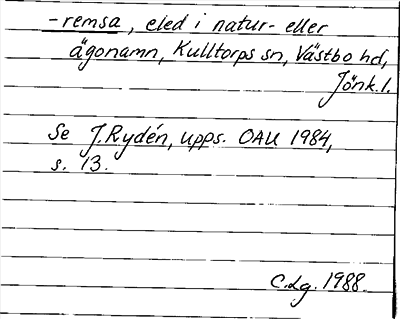 -remsa, eled i natur- eller
ägonamn, Kulltorps sn, Västbo hd,
Jönk. l.
Se J. Rydén, upps. OAU 1984,
s. 13.
C.Lg. 1988.